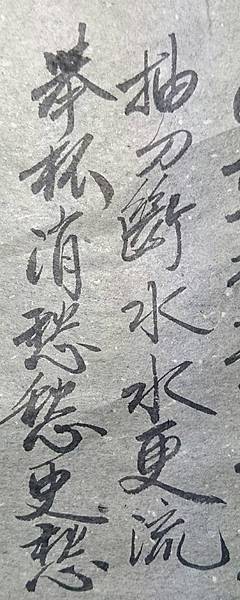 抽刀斷水水更流
舉杯消愁愁更愁